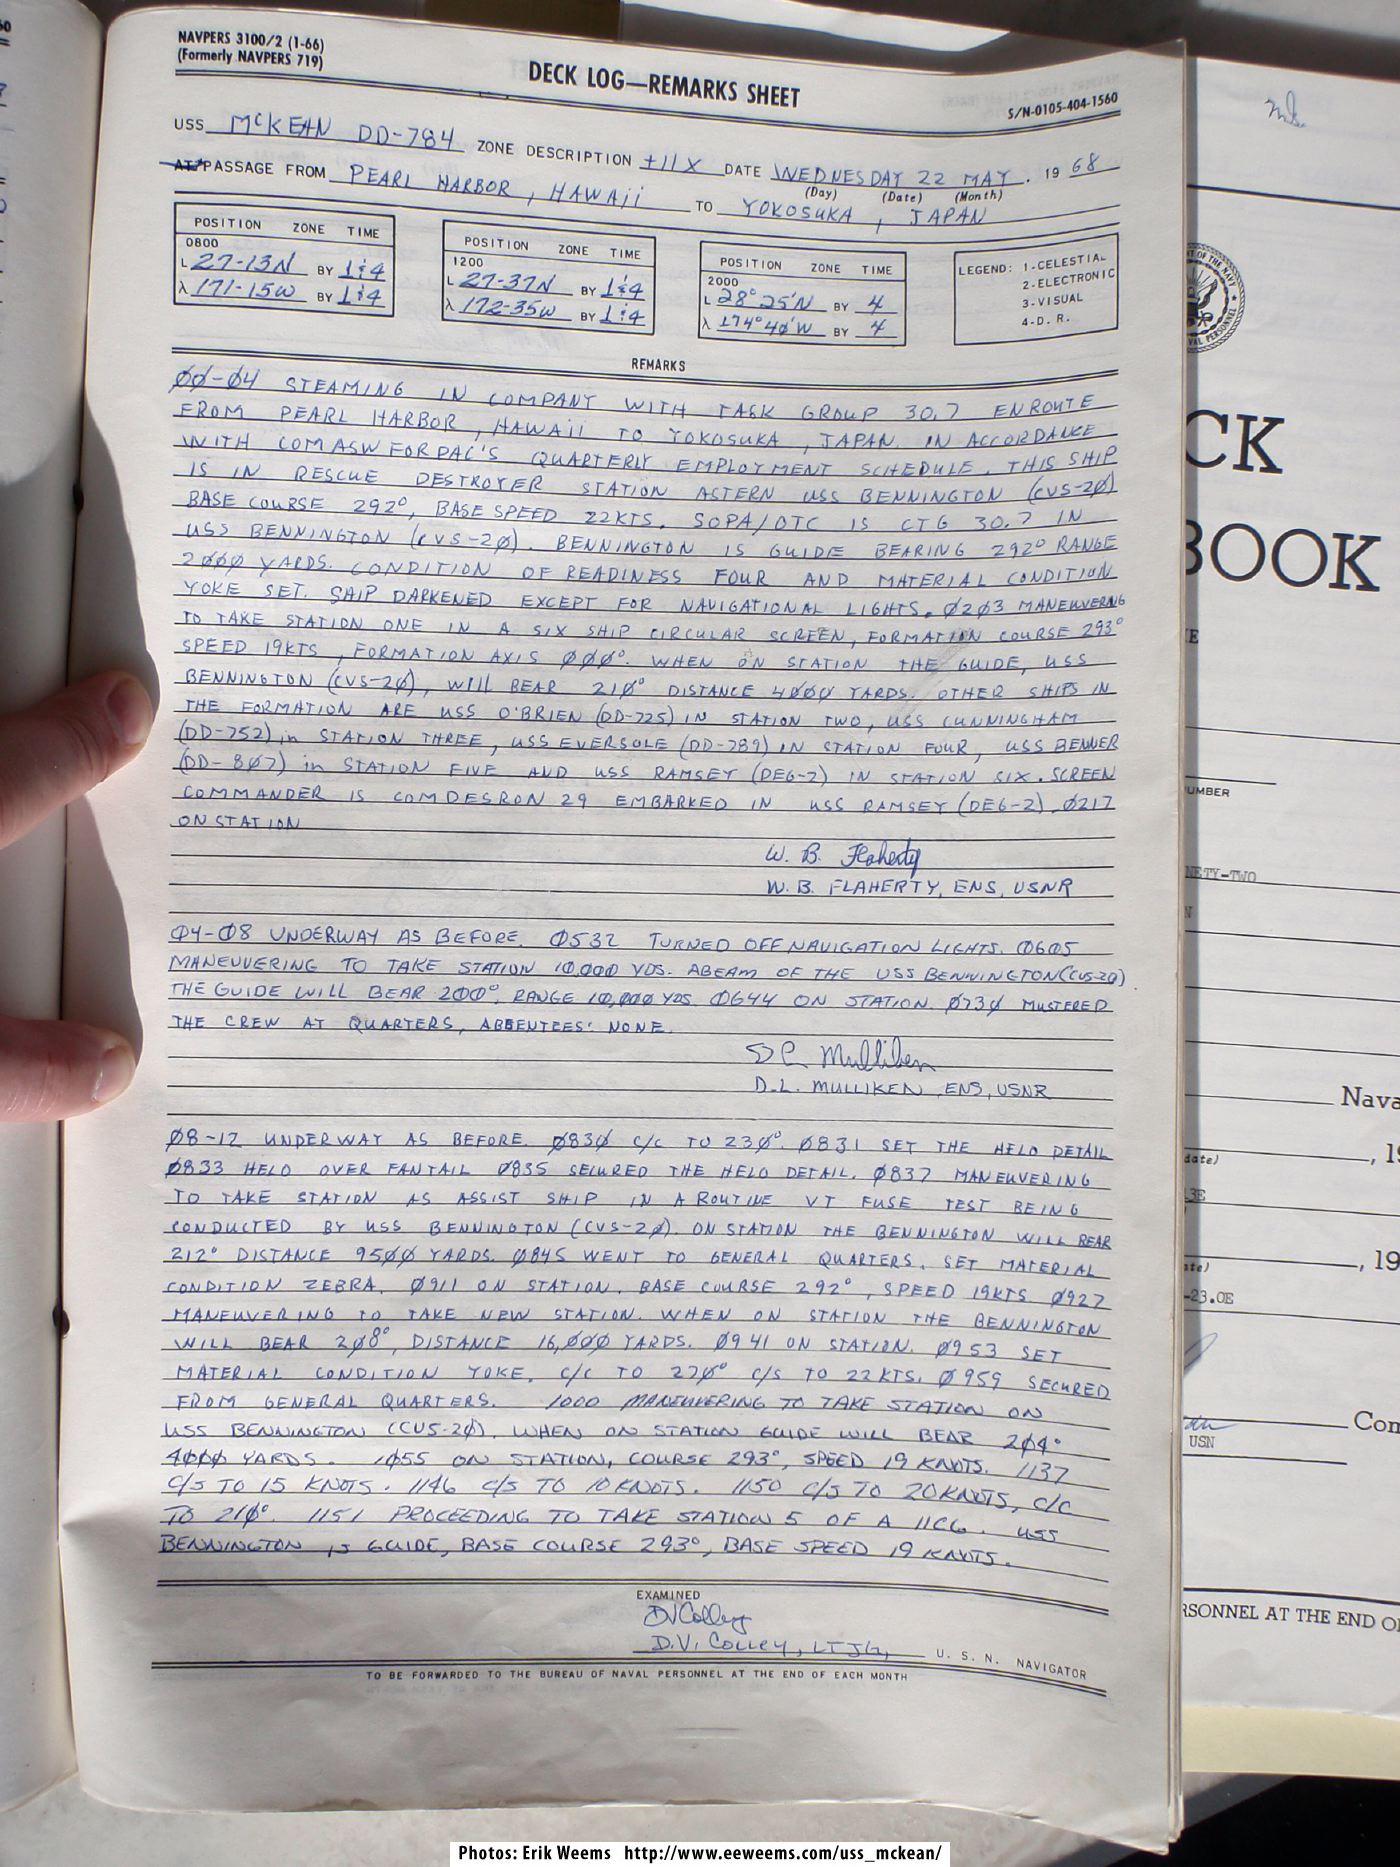 NAVPERS 3100/2 (1-66)
(Formerly NAVPERS 719)
DECK LOG—REMARKS SHEET
S/N-0105-404-1560
USS McKEAN DD-784 ZONE DESCRIPTION +11X DATE WEDNESDAY 22 MAY. 19 68
(Day) (Date) (Month)
AT/PASSAGE FROM PEARL HARBOR, HAWAii TO YOKOSUKA, JAPAN
POSITION ZONE TIME
0800
L 27-13N BY 1&4
λ 171-15W BY 1&4
POSITION ZONE TIME
1200
L 27-37N BY 1&4
λ 172-35W BY 1&4
POSITION ZONE TIME
2000
L 28°25'N BY 4
λ 174°40'W BY 4
LEGEND: 1-CELESTIAL
2-ELECTRONIC
3-VISUAL
4-D. R.
REMARKS
00-04 STEAMING IN COMPANY WITH TASK GROUP 30.7 ENROUTE
FROM PEARL HARBOR, HAWAII TO YOKOSUKA, JAPAN. IN ACCORDANCE
WITH COMASWFORPAC'S QUARTERLY EMPLOYMENT SCHEDULE. THIS SHIP
IS IN RESCUE DESTROYER STATION ASTERN USS BENNINGTON (CVS-20)
BASE COURSE 292°, BASE SPEED 22KTS. SOPA/OTC IS CTG 30.7 IN
USS BENNINGTON (CVS-20). BENNINGTON IS GUIDE BEARING 292° RANGE
2000 YARDS. CONDITION OF READINESS FOUR AND MATERIAL CONDITION
YOKE SET. SHIP DARKENED EXCEPT FOR NAVIGATIONAL LIGHTS. 0203 MANEUVERING
TO TAKE STATION ONE IN A SIX SHIP CIRCULAR SCREEN, FORMATION COURSE 293°
SPEED 19KTS, FORMATION AXIS 000°. WHEN ON STATION THE GUIDE, USS
BENNINGTON (CVS-20), WILL BEAR 210° DISTANCE 4000 YARDS. OTHER SHIPS IN
THE FORMATION ARE USS O'BRIEN (DD-725) IN STATION TWO, USS CUNNINGHAM
(DD-752) in STATION THREE, USS EVERSOLE (DD-789) IN STATION FOUR, USS BENNER
(DD-807) in STATION FIVE AND USS RAMSEY (DEG-2) IN STATION SIX. SCREEN
COMMANDER IS COMDESRON 29 EMBARKED IN USS RAMSEY (DEG-2). 0217
ON STATION
W. B. Flaherty
W. B. FLAHERTY, ENS, USNR
04-08 UNDERWAY AS BEFORE. 0532 TURNED OFF NAVIGATION LIGHTS. 0605
MANEUVERING TO TAKE STATION 10,000 YDS. ABEAM OF THE USS BENNINGTON (CVS-20)
THE GUIDE WILL BEAR 200°, RANGE 10,000 YDS. 0644 ON STATION. 0730 MUSTERED
THE CREW AT QUARTERS, ABSENTEES: NONE.
D L Mulliken
D.L. MULLIKEN, ENS, USNR
08-12 UNDERWAY AS BEFORE. 0830 C/C TO 230°. 0831 SET THE HELO DETAIL
0833 HELO OVER FANTAIL 0835 SECURED THE HELO DETAIL. 0837 MANEUVERING
TO TAKE STATION AS ASSIST SHIP IN A ROUTINE VT FUSE TEST BEING
CONDUCTED BY USS BENNINGTON (CVS-20). ON STATION THE BENNINGTON WILL BEAR
212° DISTANCE 9500 YARDS. 0845 WENT TO GENERAL QUARTERS. SET MATERIAL
CONDITION ZEBRA. 0911 ON STATION. BASE COURSE 292°, SPEED 19KTS 0927
MANEUVERING TO TAKE NEW STATION. WHEN ON STATION THE BENNINGTON
WILL BEAR 208°, DISTANCE 16,000 YARDS. 0941 ON STATION. 0953 SET
MATERIAL CONDITION YOKE. C/C TO 270° C/S TO 22 KTS. 0959 SECURED
FROM GENERAL QUARTERS. 1000 MANEUVERING TO TAKE STATION ON
USS BENNINGTON (CVS-20). WHEN ON STATION GUIDE WILL BEAR 204°
4000 YARDS. 1055 ON STATION, COURSE 293°, SPEED 19 KNOTS. 1137
C/S TO 15 KNOTS. 1146 C/S TO 10 KNOTS. 1150 C/S TO 20 KNOTS, C/C
TO 210°. 1151 PROCEEDING TO TAKE STATION 5 OF A 11CG. USS
BENNINGTON is GUIDE, BASE COURSE 293°, BASE SPEED 19 KNOTS.
EXAMINED
DV Colley
D.V. COLLEY, LTJG, U. S. N. NAVIGATOR
TO BE FORWARDED TO THE BUREAU OF NAVAL PERSONNEL AT THE END OF EACH MONTH
CK
BOOK
UMBER
NETY-TWO
Nava
date)
, 19
-23.0E
Com
USN
RSONNEL AT THE END OF
Photos: Erik Weems http://www.eeweems.com/uss_mckean/